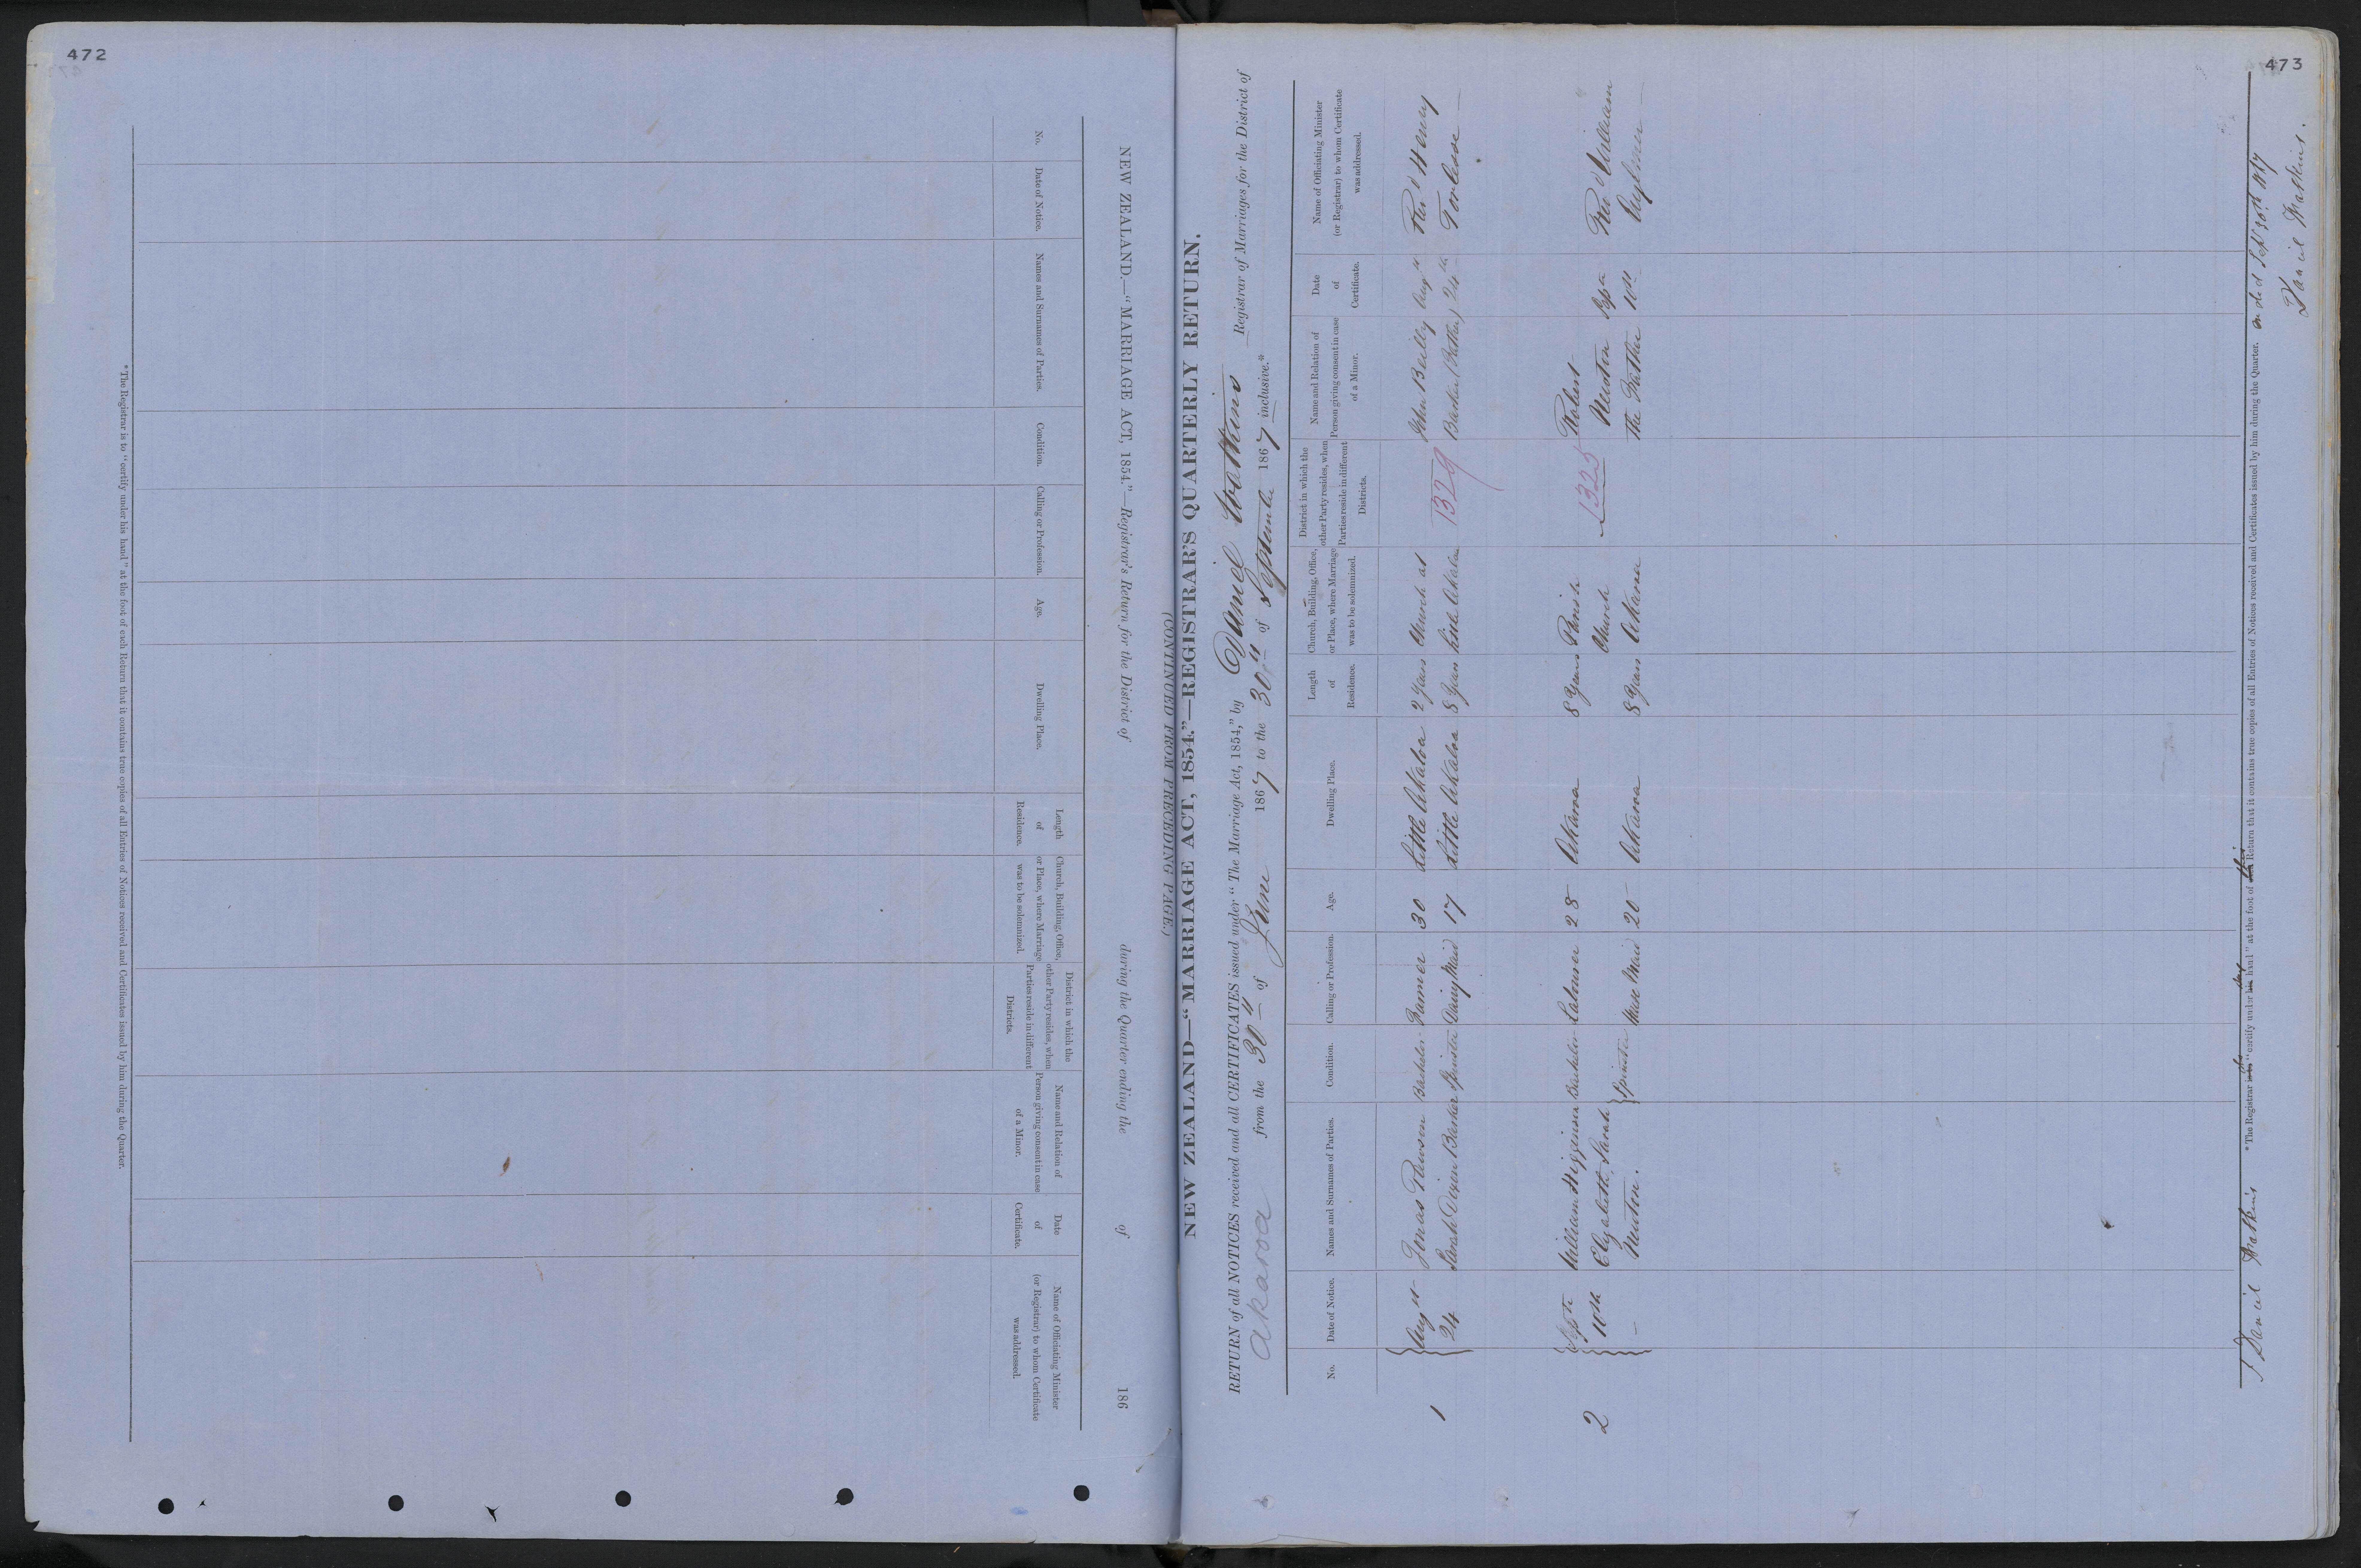 472
(CONTINUED FROM PRECEDING PAGE.)
NEW ZEALAND.—"MARRIAGE ACT, 1854."—Registrar's Return for the District of during the Quarter ending the of 186
No.
Date of Notice.
Names and Surnames of Parties.
Condition.
Calling or Profession.
Age.
Dwelling Place.
Length
of
Residence.
Church, Building, Office,
or Place, where Marriage
was to be solemnized.
District in which the
other Party resides, when
Parties reside in different
Districts.
Name and Relation of
Person giving consent in case
of a Minor.
Date
of
Certificate.
Name of Officiating Minister
(or Registrar) to whom Certificate
was addressed.
*The Registrar is to "certify under his hand" at the foot of each Return that it contains true copies of all Entries of Notices received and Certificates issued by him during the Quarter.
473
NEW ZEALAND—"MARRIAGE ACT, 1854."—REGISTRAR'S QUARTERLY RETURN.
RETURN of all NOTICES received and all CERTIFICATES issued under "The Marriage Act, 1854," by Daniel Watkins Registrar of Marriages for the District of
Akaroa from the 30th of June 1867 to the 30th of September 1867 inclusive.*
No.
Date of Notice.
Names and Surnames of Parties.
Condition.
Calling or Profession.
Age.
Dwelling Place.
Length
of
Residence.
Church, Building, Office,
or Place, where Marriage
was to be solemnized.
District in which the
other Party resides, when
Parties reside in different
Districts.
Name and Relation of
Person giving consent in case
of a Minor.
Date
of
Certificate.
Name of Officiating Minister
(or Registrar) to whom Certificate
was addressed.
1 Augst Jonas Bachelor Farmer 30 Little Akaloa 2 Years Church at 1329 John Augst Revd Henry
24 Sarah Dixon Barker Spinster Dairy Maid 17 Little Akaloa 8 Years Little Akaloa Barker (Father) 24th Torlesse
2 Septr William Higginson Bachelor Labourer 28 Akaroa 8 Years Parish 1325 Robert Septr Revd William
10th Elizabeth Sarah Spinster Church Newton 10th Aylmer
Newton. Maid 20 Akaroa 8 Years Akaroa the Father
I Daniel Watkins *The Registrar is to "certify under his hand" at the foot of this Return that it contains true copies of all Entries of Notices received and Certificates issued by him during the Quarter. ended Sept 30th 1867
Daniel Watkins.